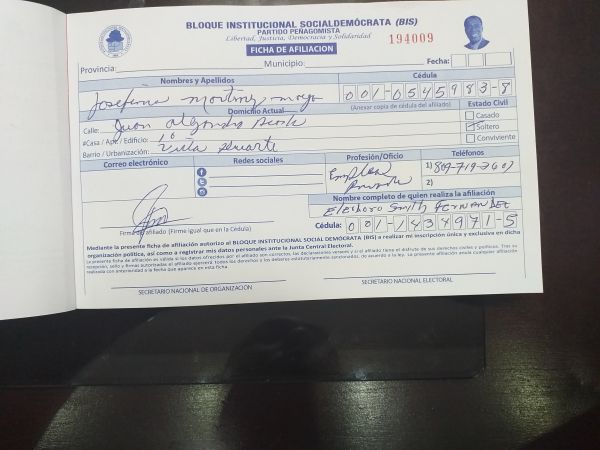 BLOQUE INSTITUCIONAL SOCIALDEMÓCRATA (BIS)
PARTIDO PEÑAGOMISTA
Libertad, Justicia, Democracia y Solidaridad
FICHA DE AFILIACION
194009
Provincia: Municipio: Fecha:
Nombres y Apellidos Cédula
Josefina Martinez 001-0545983-8
Domicilio Actual (Anexar copia de cédula del afiliado) Estado Civil
Calle: Juan Alejandro Acosta Casado
#Casa / Apt / Edificio: 10 Soltero
Barrio / Urbanización: Villa Duarte Conviviente
Correo electrónico Redes sociales Profesión/Oficio Teléfonos
Empleada 1) 809-719-3607
Privada 2)
Nombre completo de quien realiza la afiliación
Eleodoro Smith Fernandez
Firma del afiliado (Firme igual que en la Cédula) Cédula: 001-1838971-5
Mediante la presente ficha de afiliación autorizo al BLOQUE INSTITUCIONAL SOCIAL DEMÓCRATA (BIS) a realizar mi inscripción única y exclusiva en dicha
organización política, así como a registrar mis datos personales ante la Junta Central Electoral.
SECRETARIO NACIONAL DE ORGANIZACIÓN SECRETARIO NACIONAL ELECTORAL